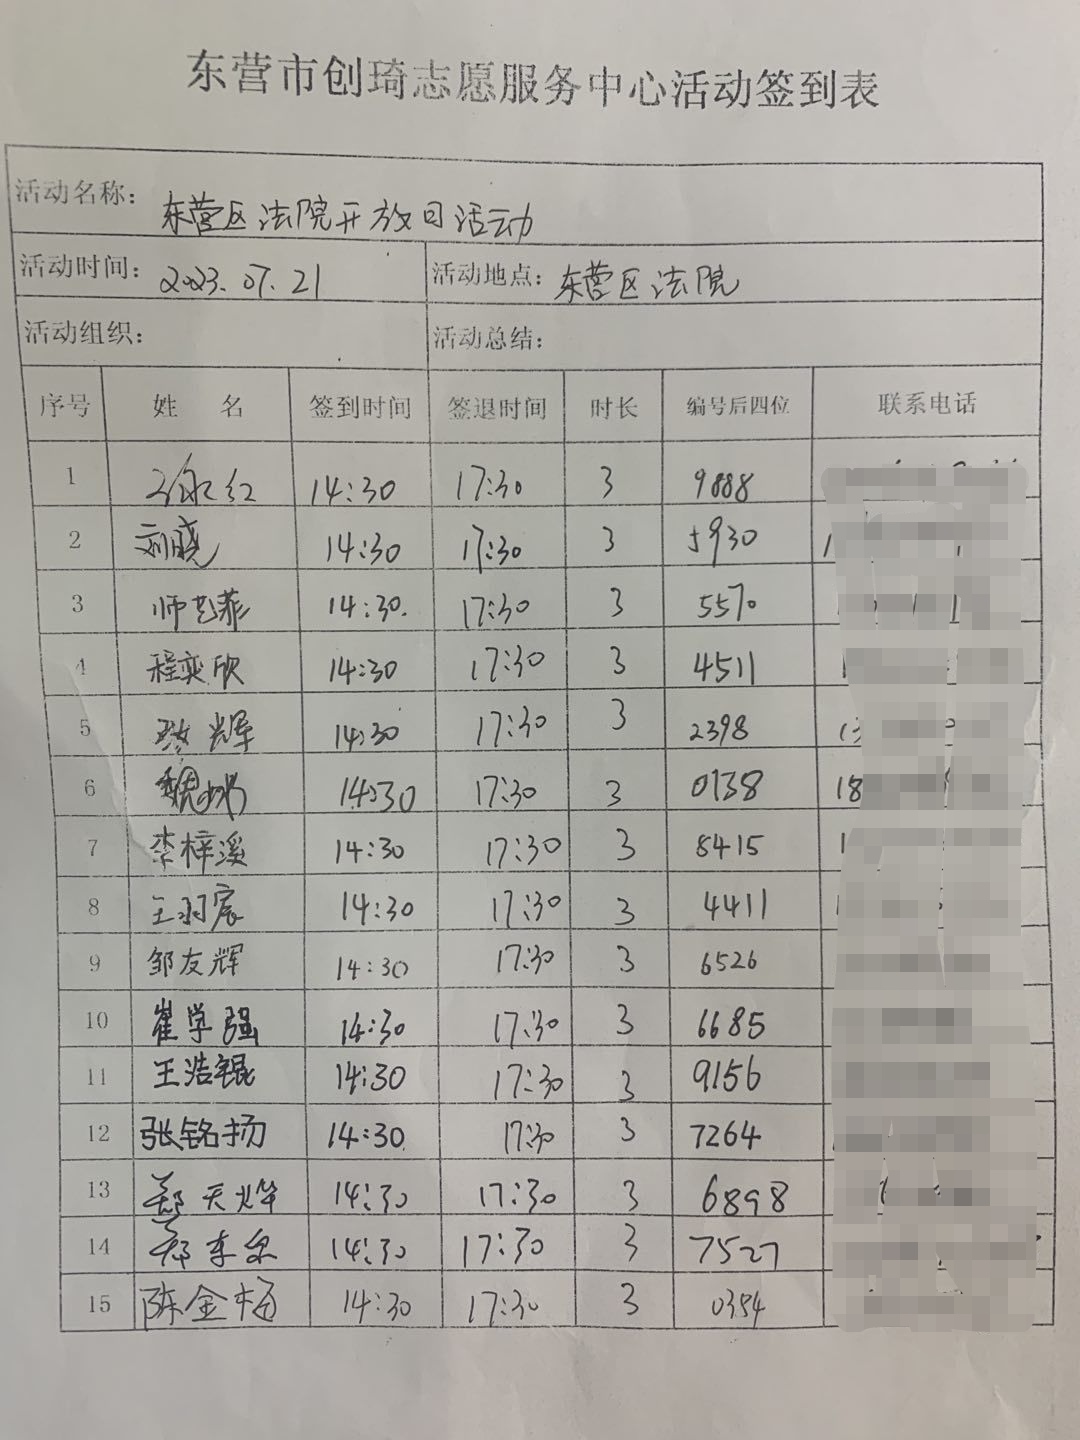 东营市创琦志愿服务中心活动签到表
活动名称: 东营区法院开放日活动
活动时间: 2023.07.21 活动地点: 东营区法院
活动组织: 活动总结:
序号 姓 名 签到时间 签退时间 时长 编号后四位 联系电话
1 红 14:30 17:30 3 9888
2 刘晓 14:30 17:30 3 5930 1
3 师艺菲 14:30. 17:30 3 5570
4 程奕欣 14:30 17:30 3 4511 1
5 辉 14:30 17:30 3 2398 13
6 魏 14:30 17:30 3 0138 18
7 李梓溪 14:30 17:30 3 8415 1
8 王羽宸 14:30 17:30 3 4411 1
9 邹友辉 14:30 17:30 3 6526
10 崔学强 14:30 17:30 3 6685
11 王浩锟 14:30 17:30 3 9156
12 张铭扬 14:30 17:30 3 7264
13 郑天烨 14:30 17:30 3 6898
14 郑 14:30 17:30 3 7527
15 陈金梅 14:30 17:30 3 0354